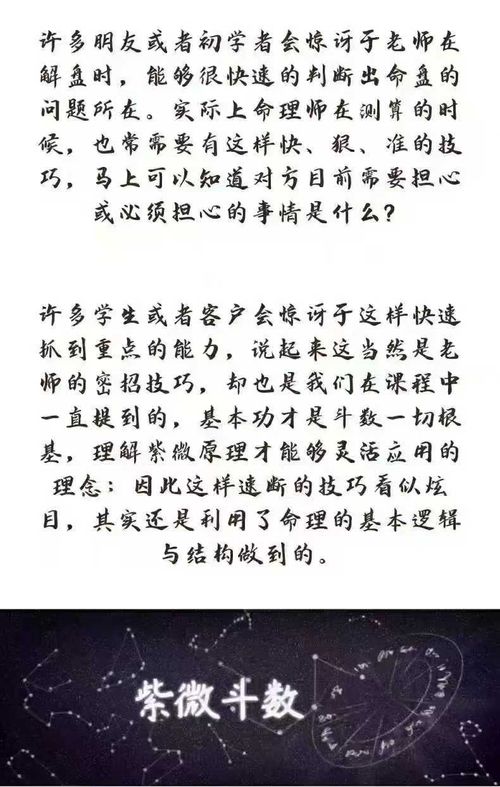 许多朋友或者初学者会惊讶于老师在
解盘时，能够很快速的判断出命盘的
问题所在。实际上命理师在测算的时
候，也常需要有这样快、狠、准的技
巧，马上可以知道对方目前需要担心
或必须担心的事情是什么？
许多学生或者客户会惊讶于这样快速
抓到重点的能力，说起来这当然是老
师的密招技巧，却也是我们在课程中
一直提到的，基本功才是斗数一切根
基，理解紫微原理才能够灵活应用的
理念：因此这样速断的技巧看似炫
目，其实还是利用了命理的基本逻辑
与结构做到的。
紫微斗数